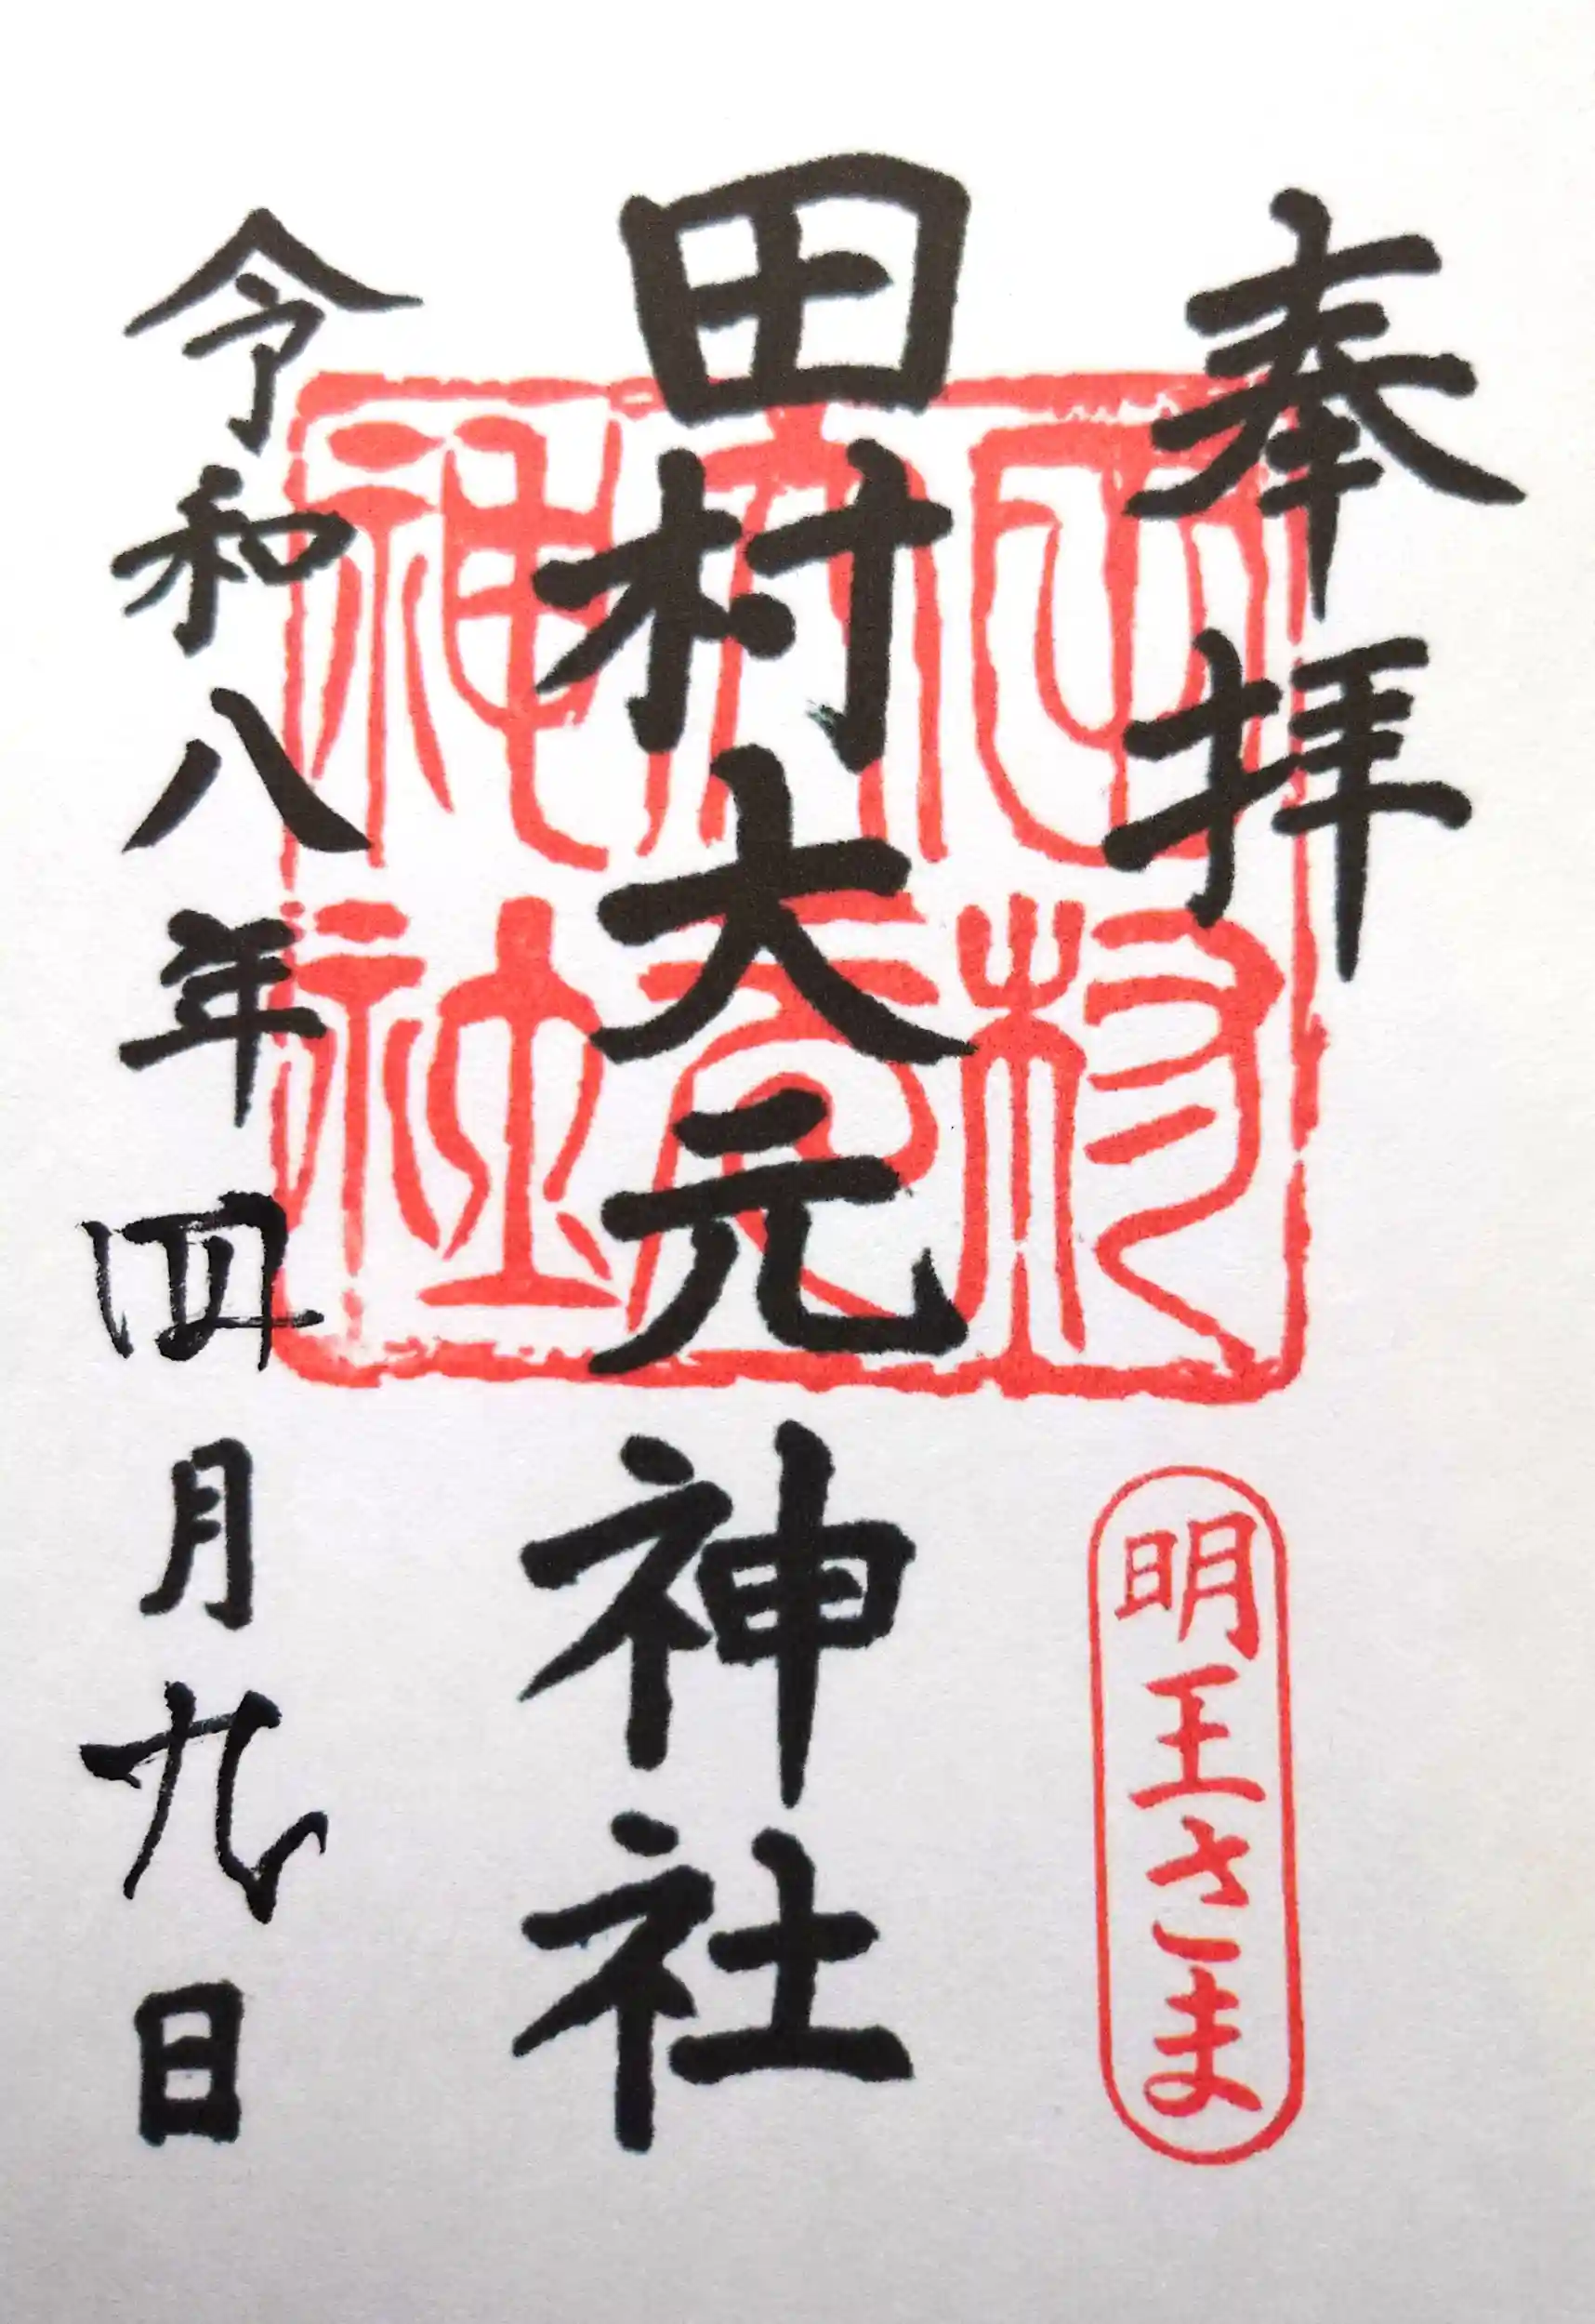 奉拝
明王さま
田村大元神社
田村
大元
神社
令和八年四月九日